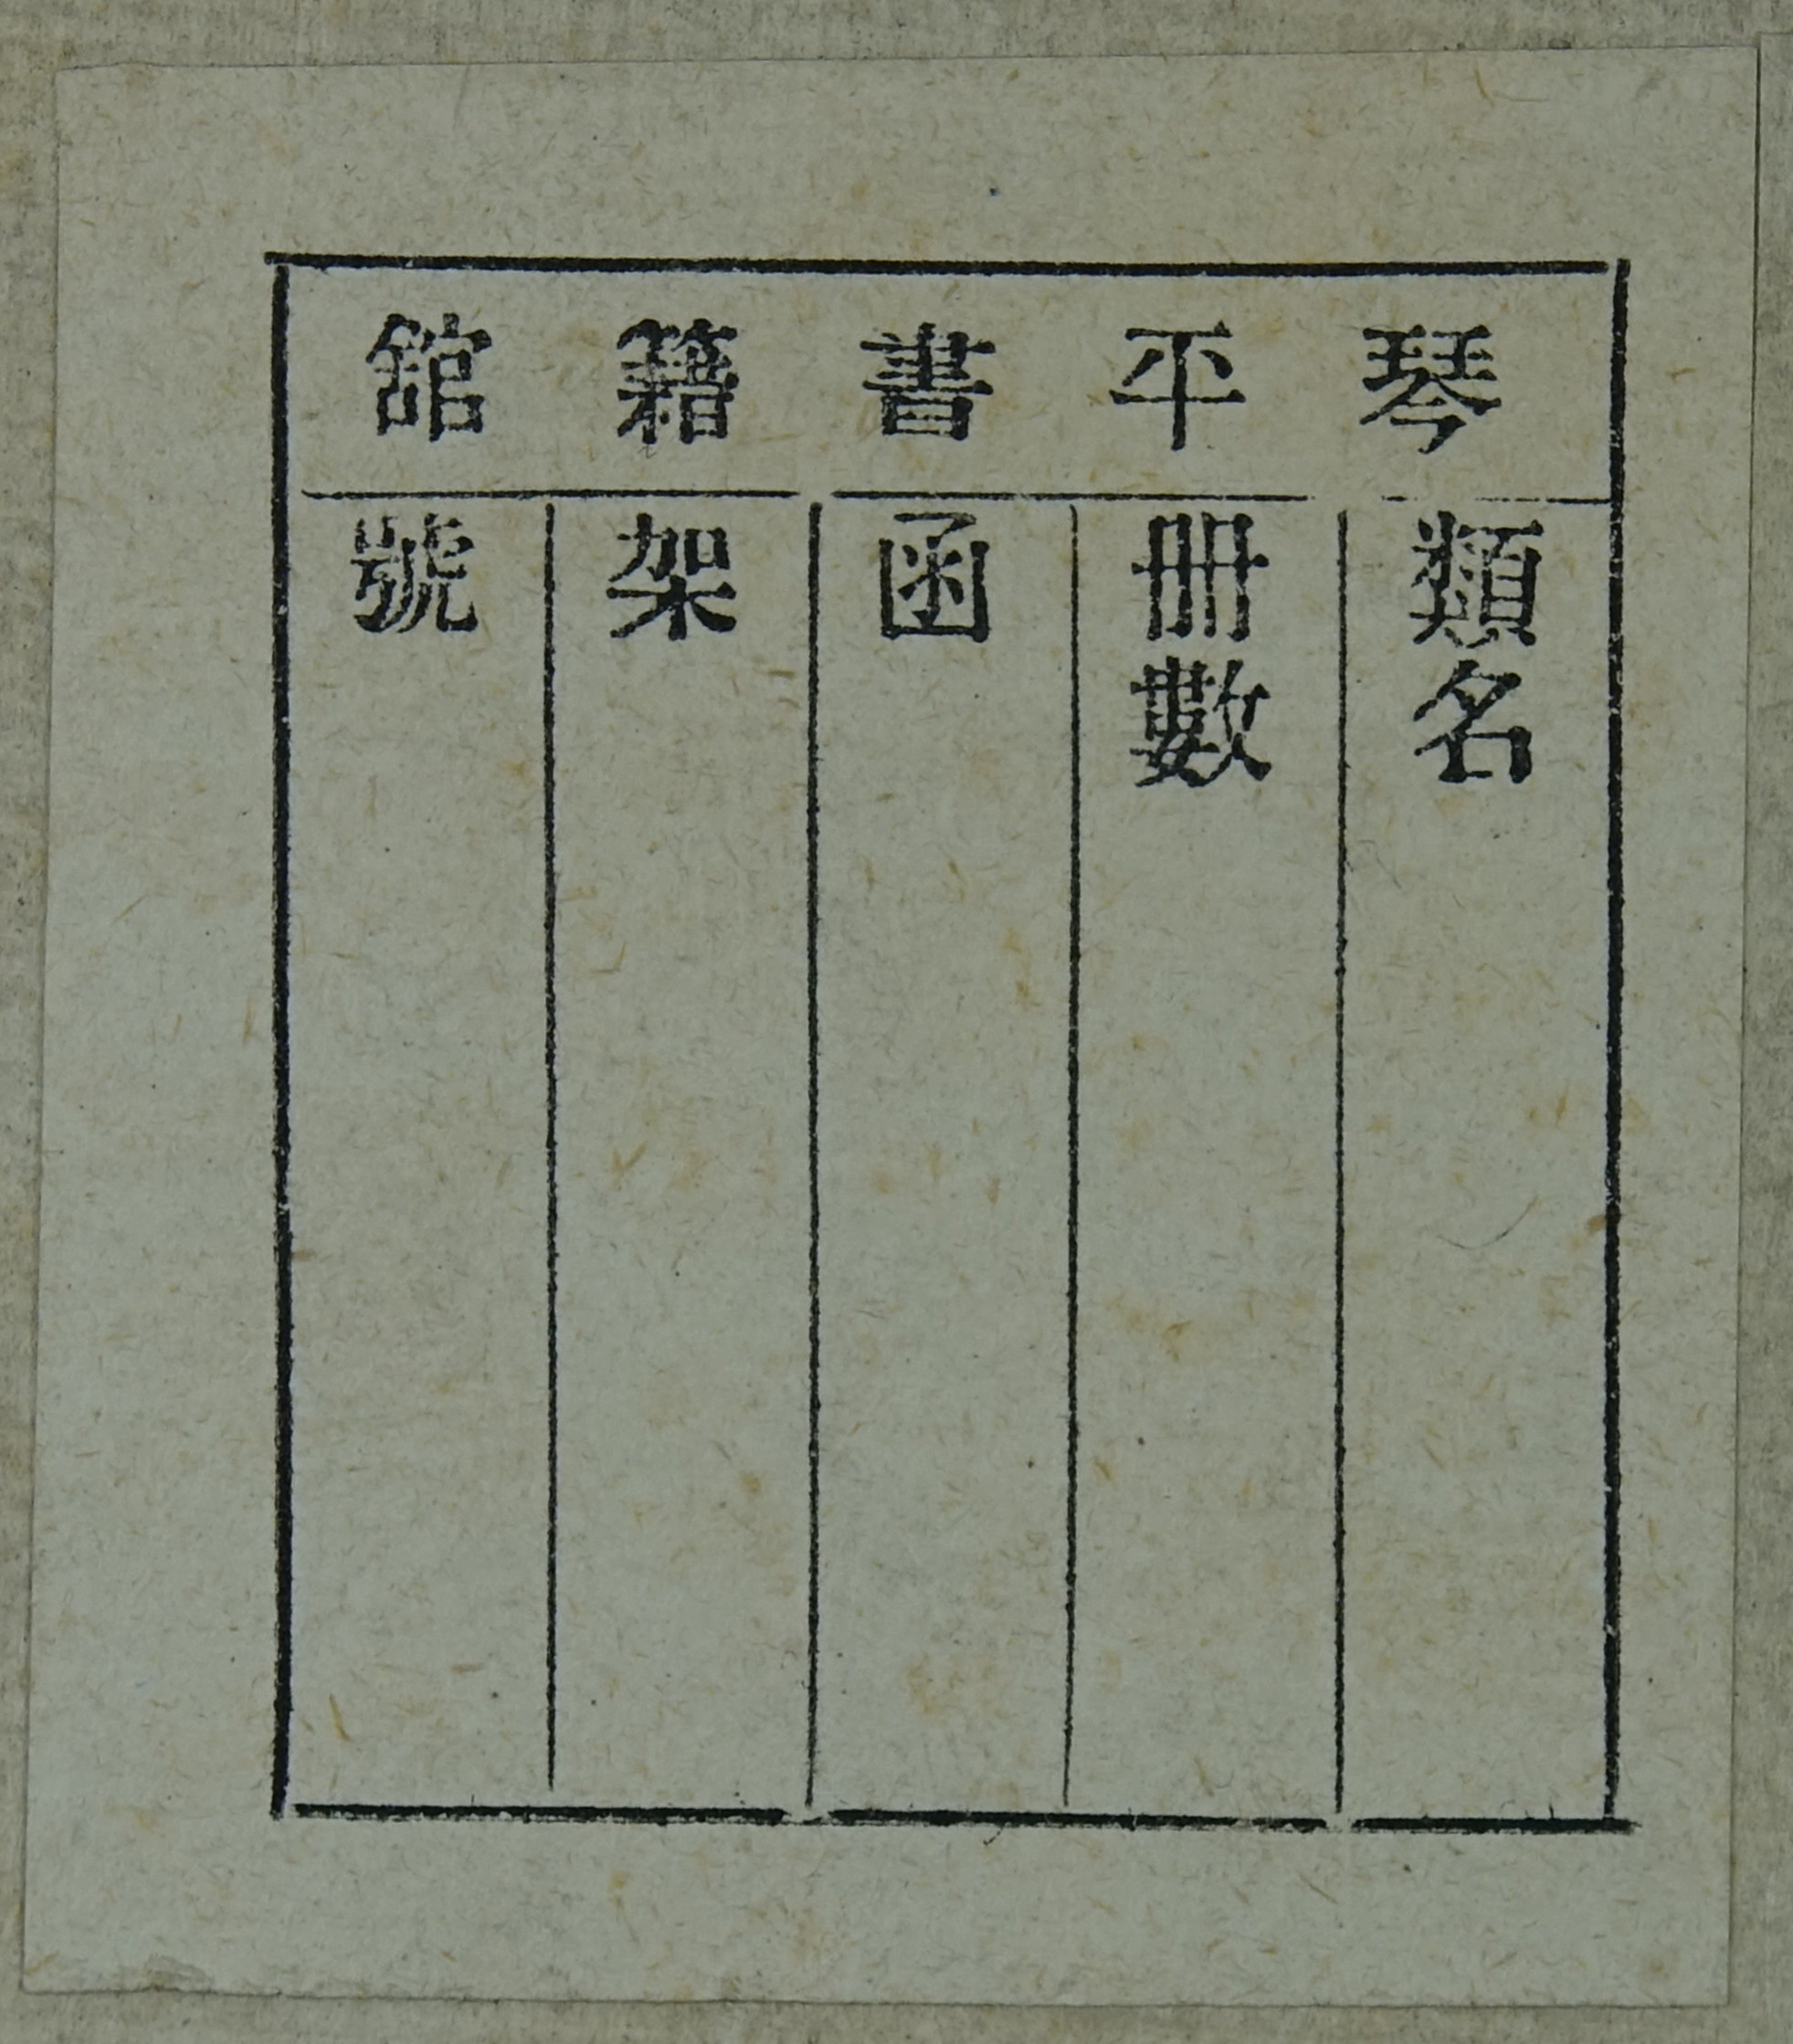 琴平書籍舘
類名
冊數
函
架
號